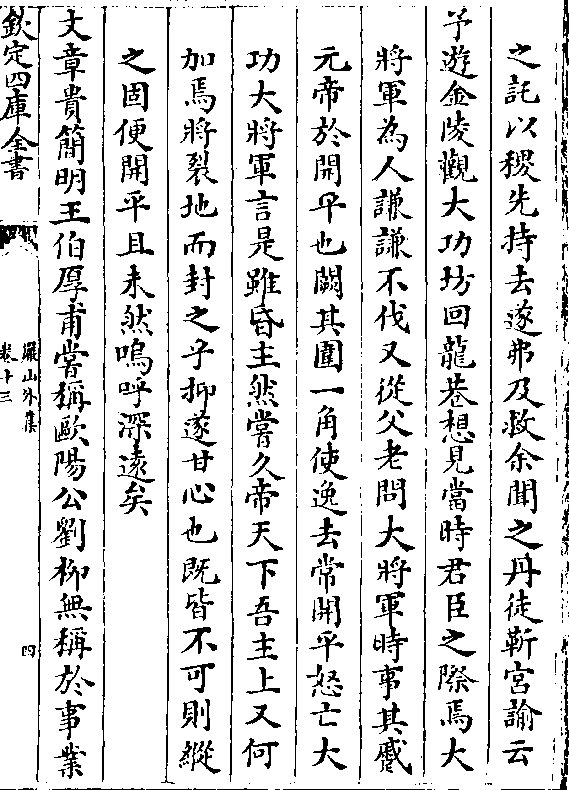 之託以稷先持去遂弗及救余聞之丹徒靳宮諭云
予遊金陵觀大功坊回龍巷想見當時君臣之際焉大
將軍為人謙謙不伐又從父老問大將軍時事其蹙
元帝於開平也闕其圍一角使逸去常開平怒亡大
功大將軍言是雖昏主然嘗久帝天下吾主上又何
加焉將裂地而封之乎抑遂甘心也既皆不可則縱
之固便開平且未然嗚呼深遠矣
文章貴簡明王伯厚甫嘗稱歐陽公劉柳無稱於事業
欽定四庫全書
儼山外集
卷十三
四